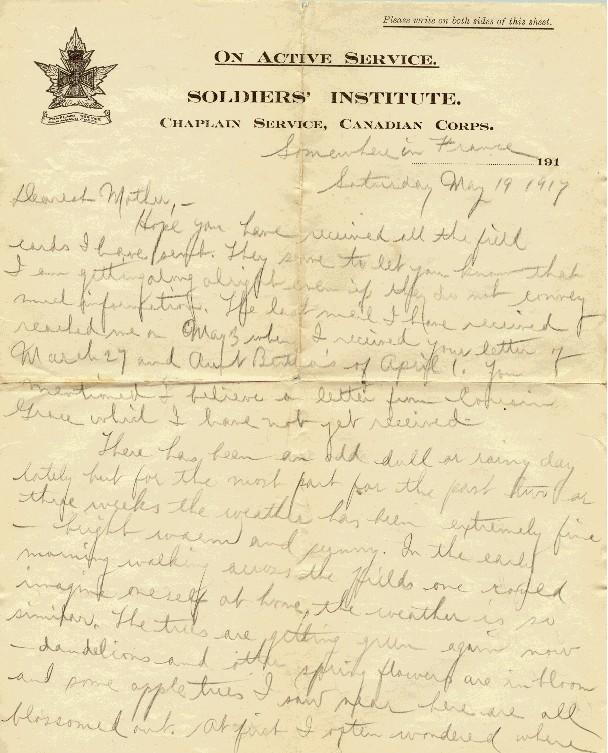 Please write on both sides of this sheet.
ON ACTIVE SERVICE.
SOLDIERS' INSTITUTE.
CHAPLAIN SERVICE, CANADIAN CORPS.
Somewhere in France 191
Saturday May 19 1917
Dearest Mother,-
Hope you have received all the field
cards I have sent. They serve to let you know that
I am getting along alright even if they do not convey
much information. The last mail I have received
reached me on May 3 when I received your letter of
March 27 and Aunt Bertha's of April 1. You
mentioned I believe a letter from Cousin
Grace which I have not yet received
There has been an odd dull or rainy day
lately but for the most part for the past two or
three weeks the weather has been extremely fine
- bright warm and sunny. In the early
morning walking across the fields one could
imagine oneself at home, the weather is so
similar. The trees are getting green again now
- dandelions and other spring flowers are in bloom
and some apple trees I saw near here are all
blossomed out. At first I often wondered where